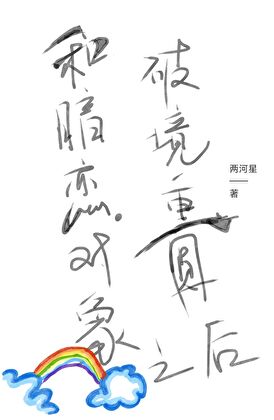 和暗恋对象
破境重圆
之后
两河星
著